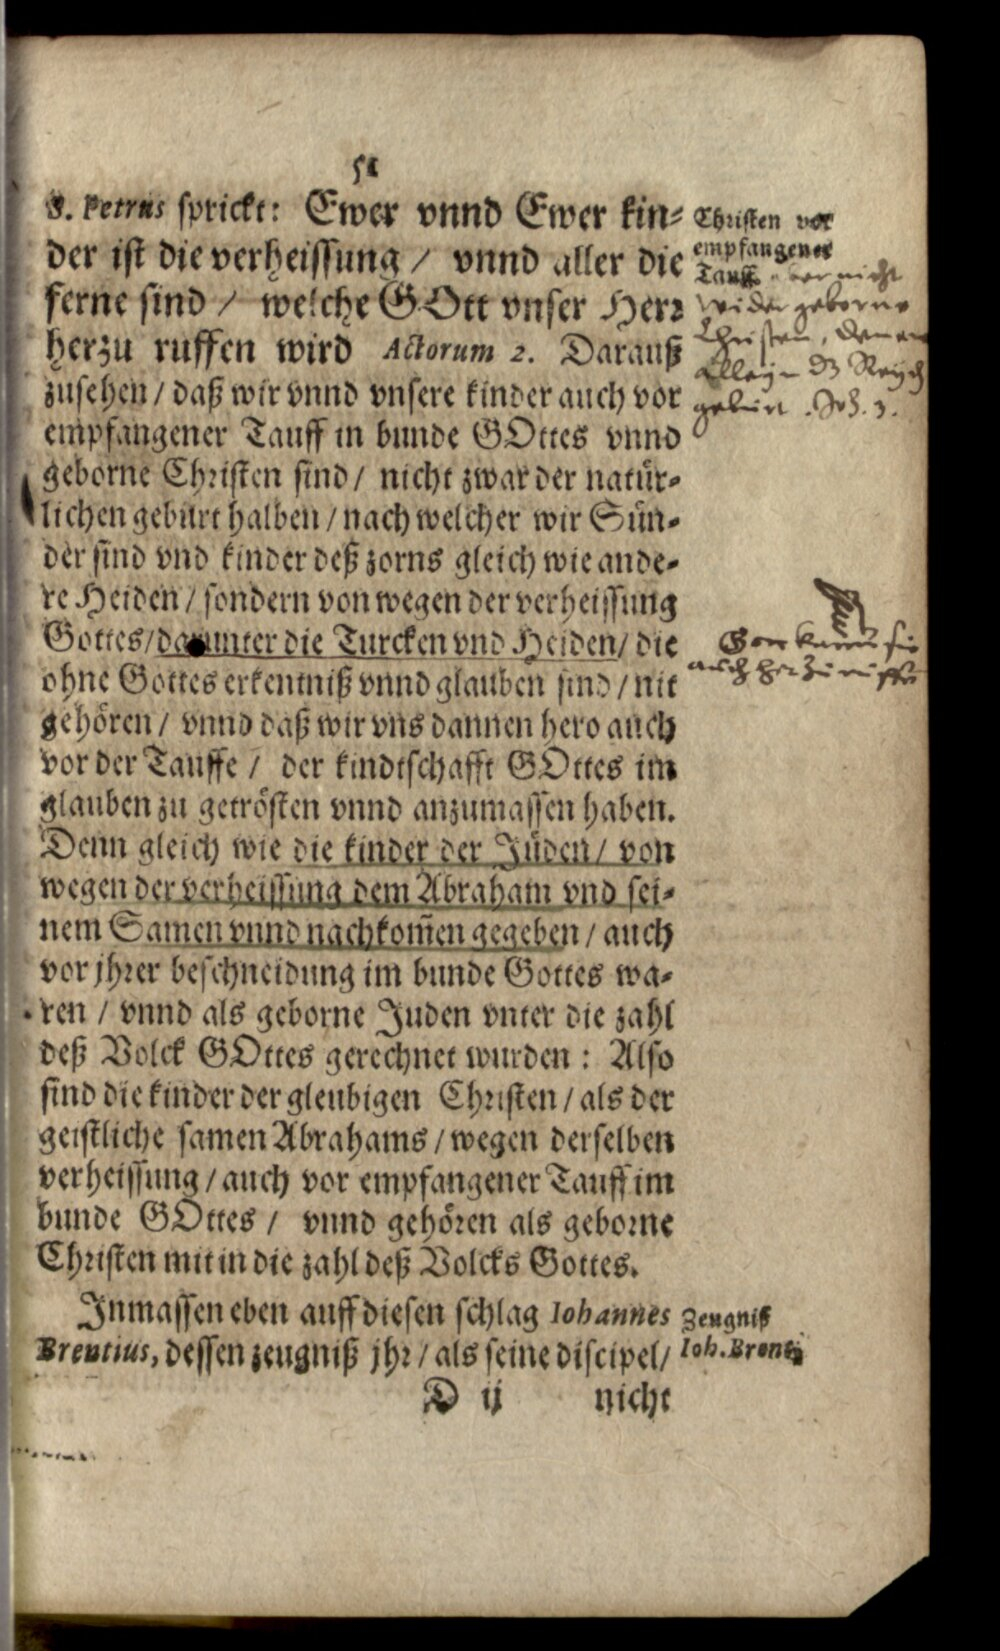 51
S. Petrus sprickt: Ewer vnnd Ewer kin⸗
der ist die verheissung / vnnd aller die
ferne sind / welche GOtt vnser Herr
herzu ruffen wird Actorum 2. Darauß
zusehen / daß wir vnnd vnsere kinder auch vor
empfangener Tauff in bunde GOttes vnnd
geborne Christen sind / nicht zwar der natür⸗
lichen geburt halben / nach welcher wir Sün⸗
der sind vnd kinder deß zorns gleich wie ande⸗
re Heiden / sondern von wegen der verheissung
Gottes / darunter die Turcken vnd Heiden / die
ohne Gottes erkentniß vnnd glauben sind / nit
gehören / vnnd daß wir vns dannen hero auch
vor der Tauffe / der kindtschafft GOttes im
glauben zu getrösten vnnd anzumassen haben.
Denn gleich wie die kinder der Jüden / von
wegen der verheissung dem Abraham vnd sei⸗
nem Samen vnnd nachkom̃en gegeben / auch
vor jhrer beschneidung im bunde Gottes wa⸗
ren / vnnd als geborne Juden vnter die zahl
deß Volck GOttes gerechnet wurden : Also
sind die kinder der gleubigen Christen / als der
geistliche samen Abrahams / wegen derselben
verheissung / auch vor empfangener Tauff im
bunde GOttes / vnnd gehören als geborne
Christen mit in die zahl deß Volcks Gottes.
Inmassen eben auff diesen schlag Iohannes
Brentius, dessen zeugniß jhr / als seine discipel /
D ij nicht
Christen vor
empfangener
Tauff. aber nicht
wider geborne
Christen, denen
allein dz Reych
gebürt. Joh. 3.
Gott kann sie
auch herzu ruffen
Zeugniß
Ioh. Brentij